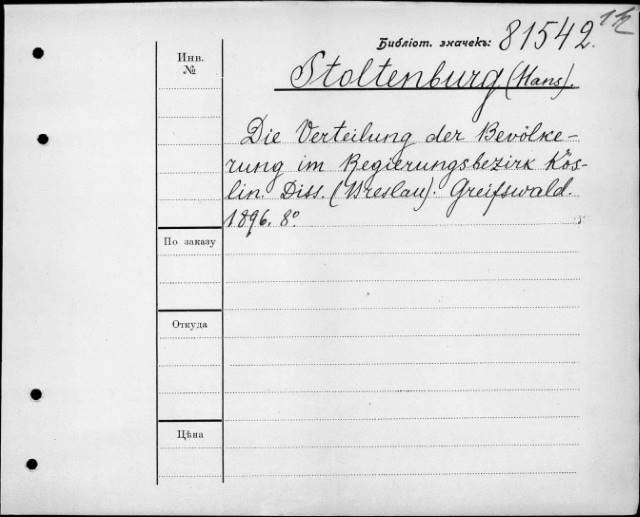 Библіот. значекъ: 81542.
Инв.
№
Stoltenburg (Hans).
Die Verteilung der Bevölke-
rung im Regierungsbezirk Kös-
lin. Diss. (Breslau). Greifswald.
1896. 8º.
По заказу
Откуда
Цѣна